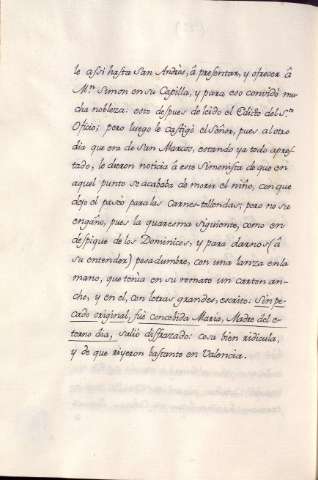 le assi hasta San Andrès, â presentar, y ofrecer â
M.ⁿ Simon en su Capilla, y para eso convidó mu
cha nobleza: esto despues de leido el Edicto del S.ᵗᵒ
Oficio; pero luego le castigò el Señor, pues al otro
dia que era de San Marcos, estando ya todo apres
tado, le dieron noticia â este Simonista de que en
aquel punto se acababa de morir el niño, con que
dejo el paseo para las Carnes-tollendas; pero no se
engañò, pues la quaresma siguiente, como en
despique de los Dominicos, y para darnos (â
su entender) pesadumbre, con una lanza en la
mano, que tenia en su remate un carton an
cho, y en el, con letras grandes, escrito: Sin pe
cado original, fué concebida Maria, Madre del e-
terno dia, saliò disfrazado: cosa bien ridicula,
y de que riyeron bastante en Valencia.